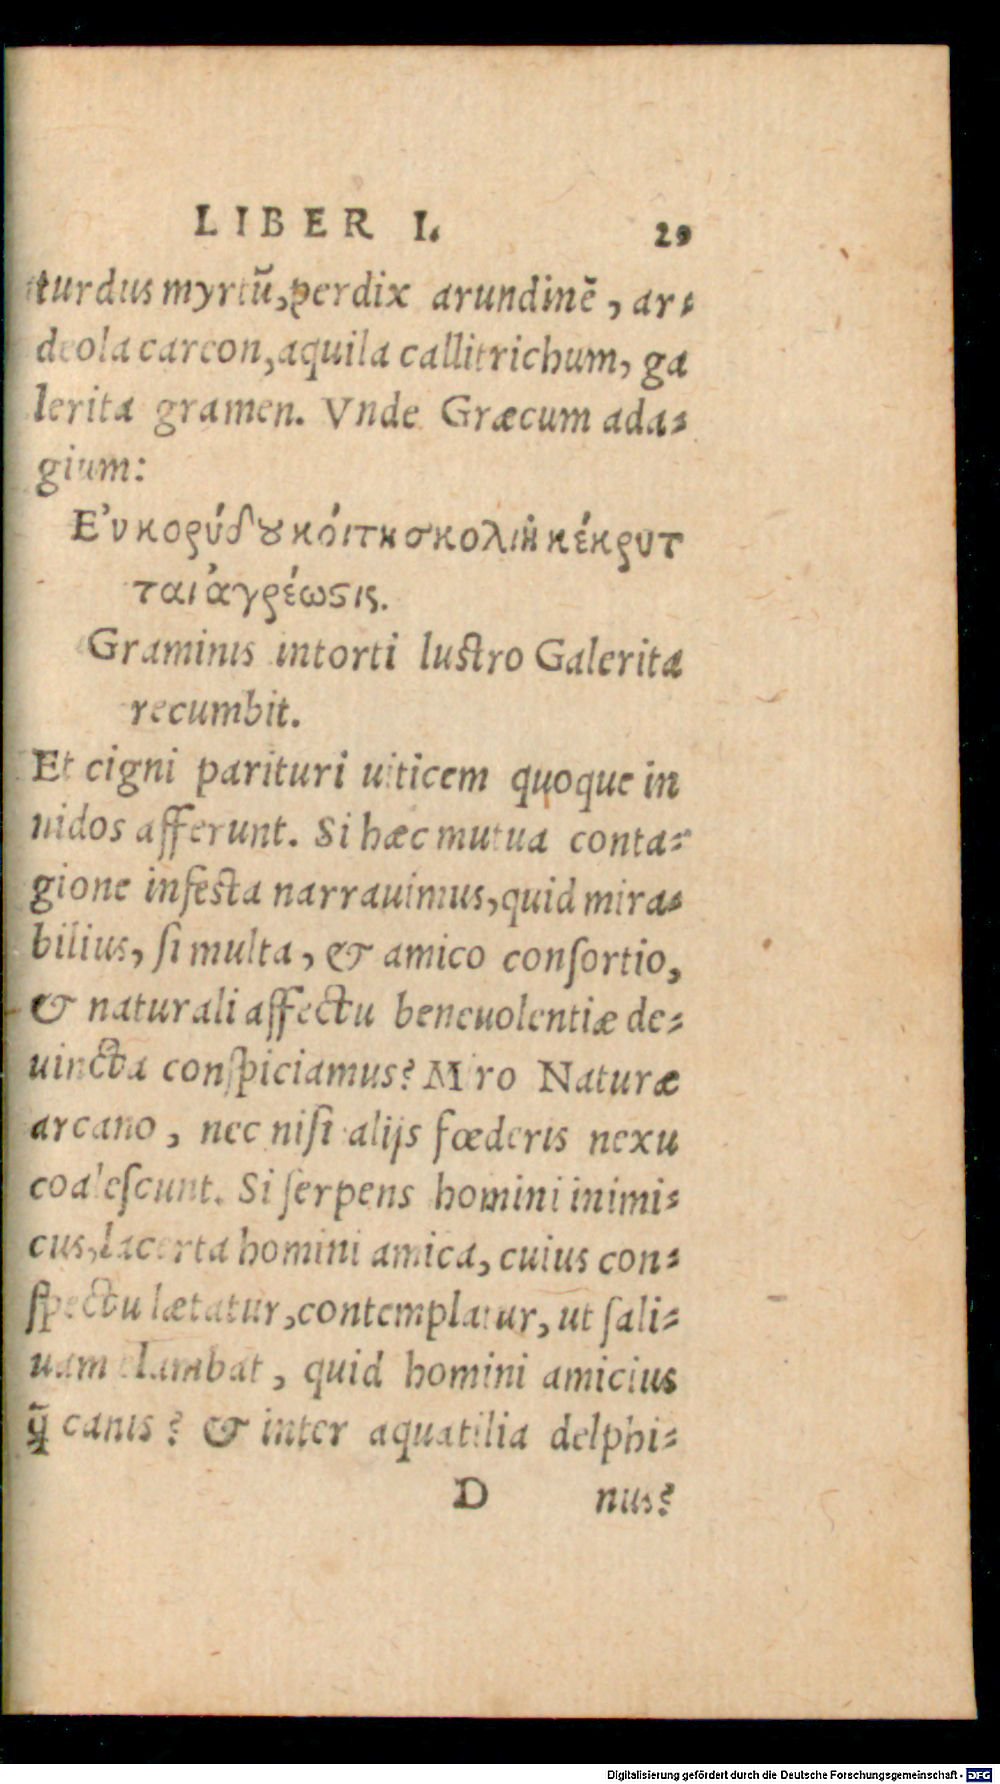 LIBER I. 29
turdus myrtū, perdix arundinē, ar⸗
deola carcon, aquila callitrichum, ga
lerita gramen. Vnde Græcum ada⸗
gium:
Ε'ν κορύδου κόιτη σκολιῆ κέκρυπ
ται ἀγρέωστις.
Graminis intorti lustro Galerita
recumbit.
Et cigni parituri uiticem quoque in
nidos afferunt. Si hæc mutua conta⸗
gione infesta narrauimus, quid mira⸗
bilius, ſi multa, & amico conſortio,
& naturali affectu beneuolentiæ de⸗
uincta conſpiciamus? Miro Naturæ
arcano, nec niſi alijs fœderis nexu
coaleſcunt. Si ſerpens homini inimi⸗
cus, lacerta homini amica, cuius con⸗
ſpectu lætatur, contemplatur, ut ſali⸗
uam elambat, quid homini amicius
q̄ canis? & inter aquatilia delphi⸗
D nus?
Digitalisierung gefördert durch die Deutsche Forschungsgemeinschaft - DFG